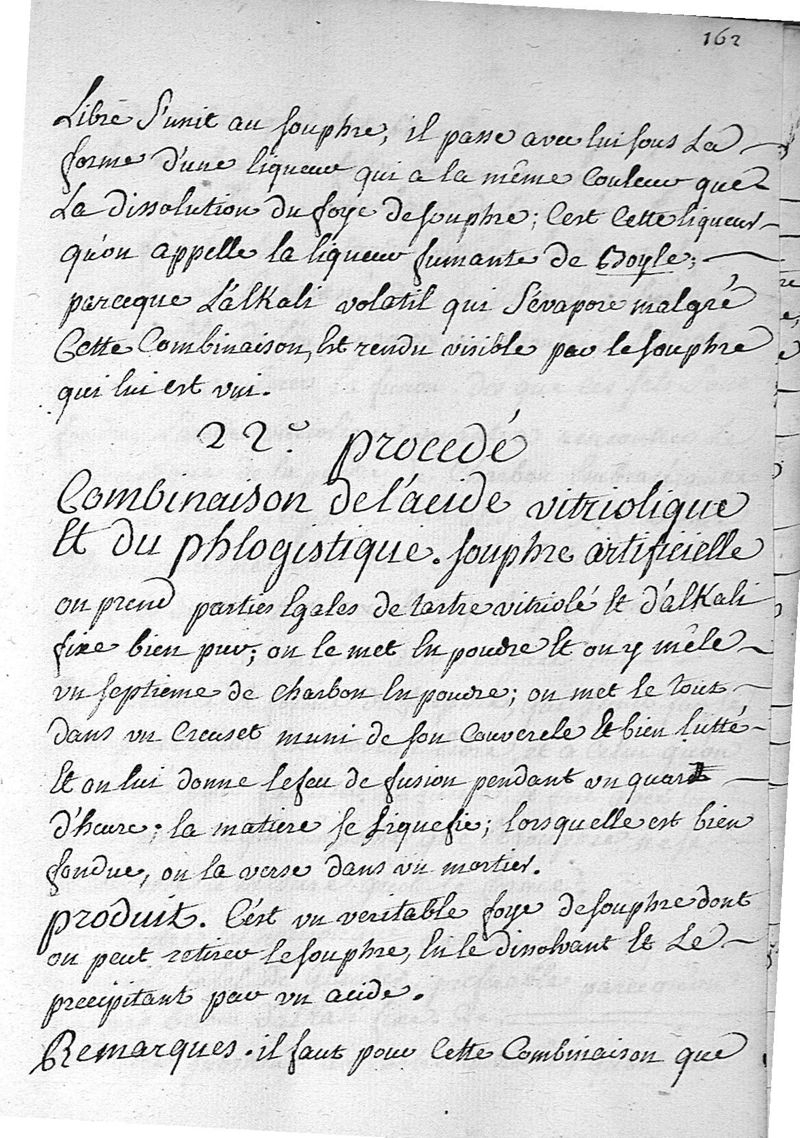 162
Libre s'unit au souphre, il passe avec lui sous La
forme d'une liqueur qui a la même Couleur que
La dissolution du foye de souphre; C'est Cette liqueur
qu'on appelle la liqueur fumante de Boyle;
parceque L'alkali volatil qui s'évapore malgré
Cette Combinaison, Est rendu visible par le souphre
qui lui est uni.
22.e procedé
Combinaison de l'acide vitriolique
Et du phlogistique. souphre artificielle
on prend parties Egales de tartre vitriolé Et d'alkali
fixe bien pur; on le met En poudre Et on y mêle
un septieme de charbon En poudre; on met le tout
dans un Creuset muni de son Couvercle Et bien lutté
Et on lui donne le feu de fusion pendant un quart
d'heure; la matiere se Liquefie; lorsquelle est bien
fondue, on la verse dans un mortier.
produit. C'est un veritable foye de souphre dont
on peut retirer le souphre, En le dissolvant Et Le
precipitant par un acide.
Remarques. il faut pour Cette Combinaison que